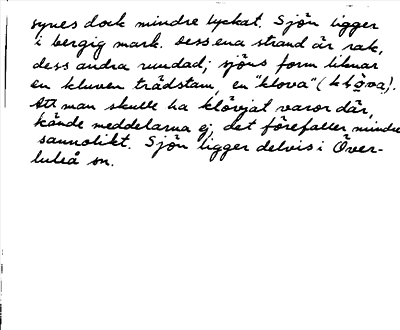 synes dock mindre lyckat. Sjön ligger
i bergig mark. Dess ena strand är rak,
dess andra rundad; sjöns form liknar
en kluven trädstam, en "klova" (klöva).
Att man skulle ha klövjat varor där,
kände meddelarna ej, det förefaller mindre
sannolikt. Sjön ligger delvis i Över-
luleå sn.